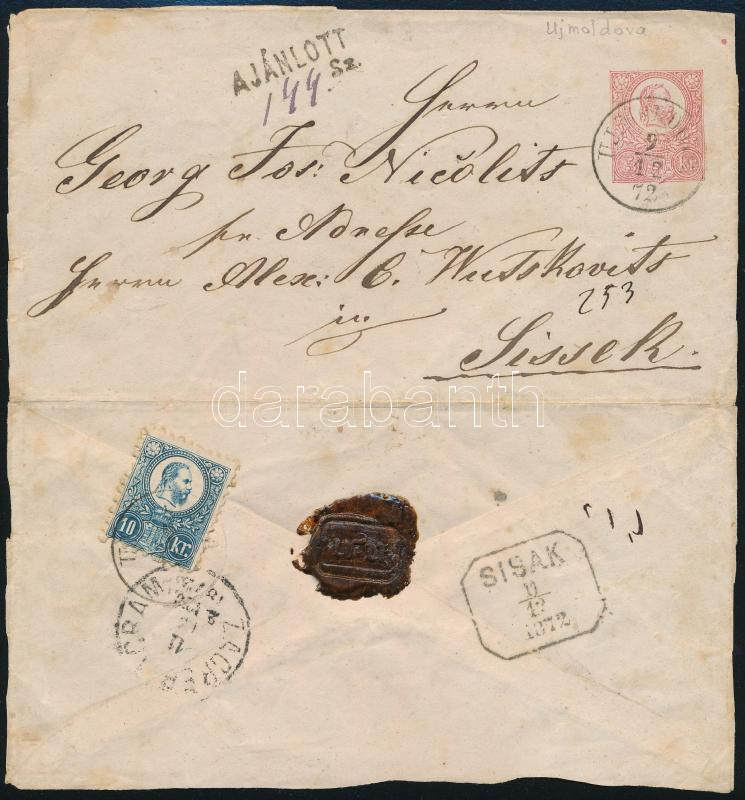 Ujmoldova
AJÁNLOTT
Sz.
144.
Herrn
Georg Jos: Nicolits
pr. Adresse
Herrn Alex: C. Wutskovits
253
in
Sissek.
9
12
72
5 Kr.
darabanth
10 Kr.
SISAK
11
12
1872
ZAGREB
AGRAM